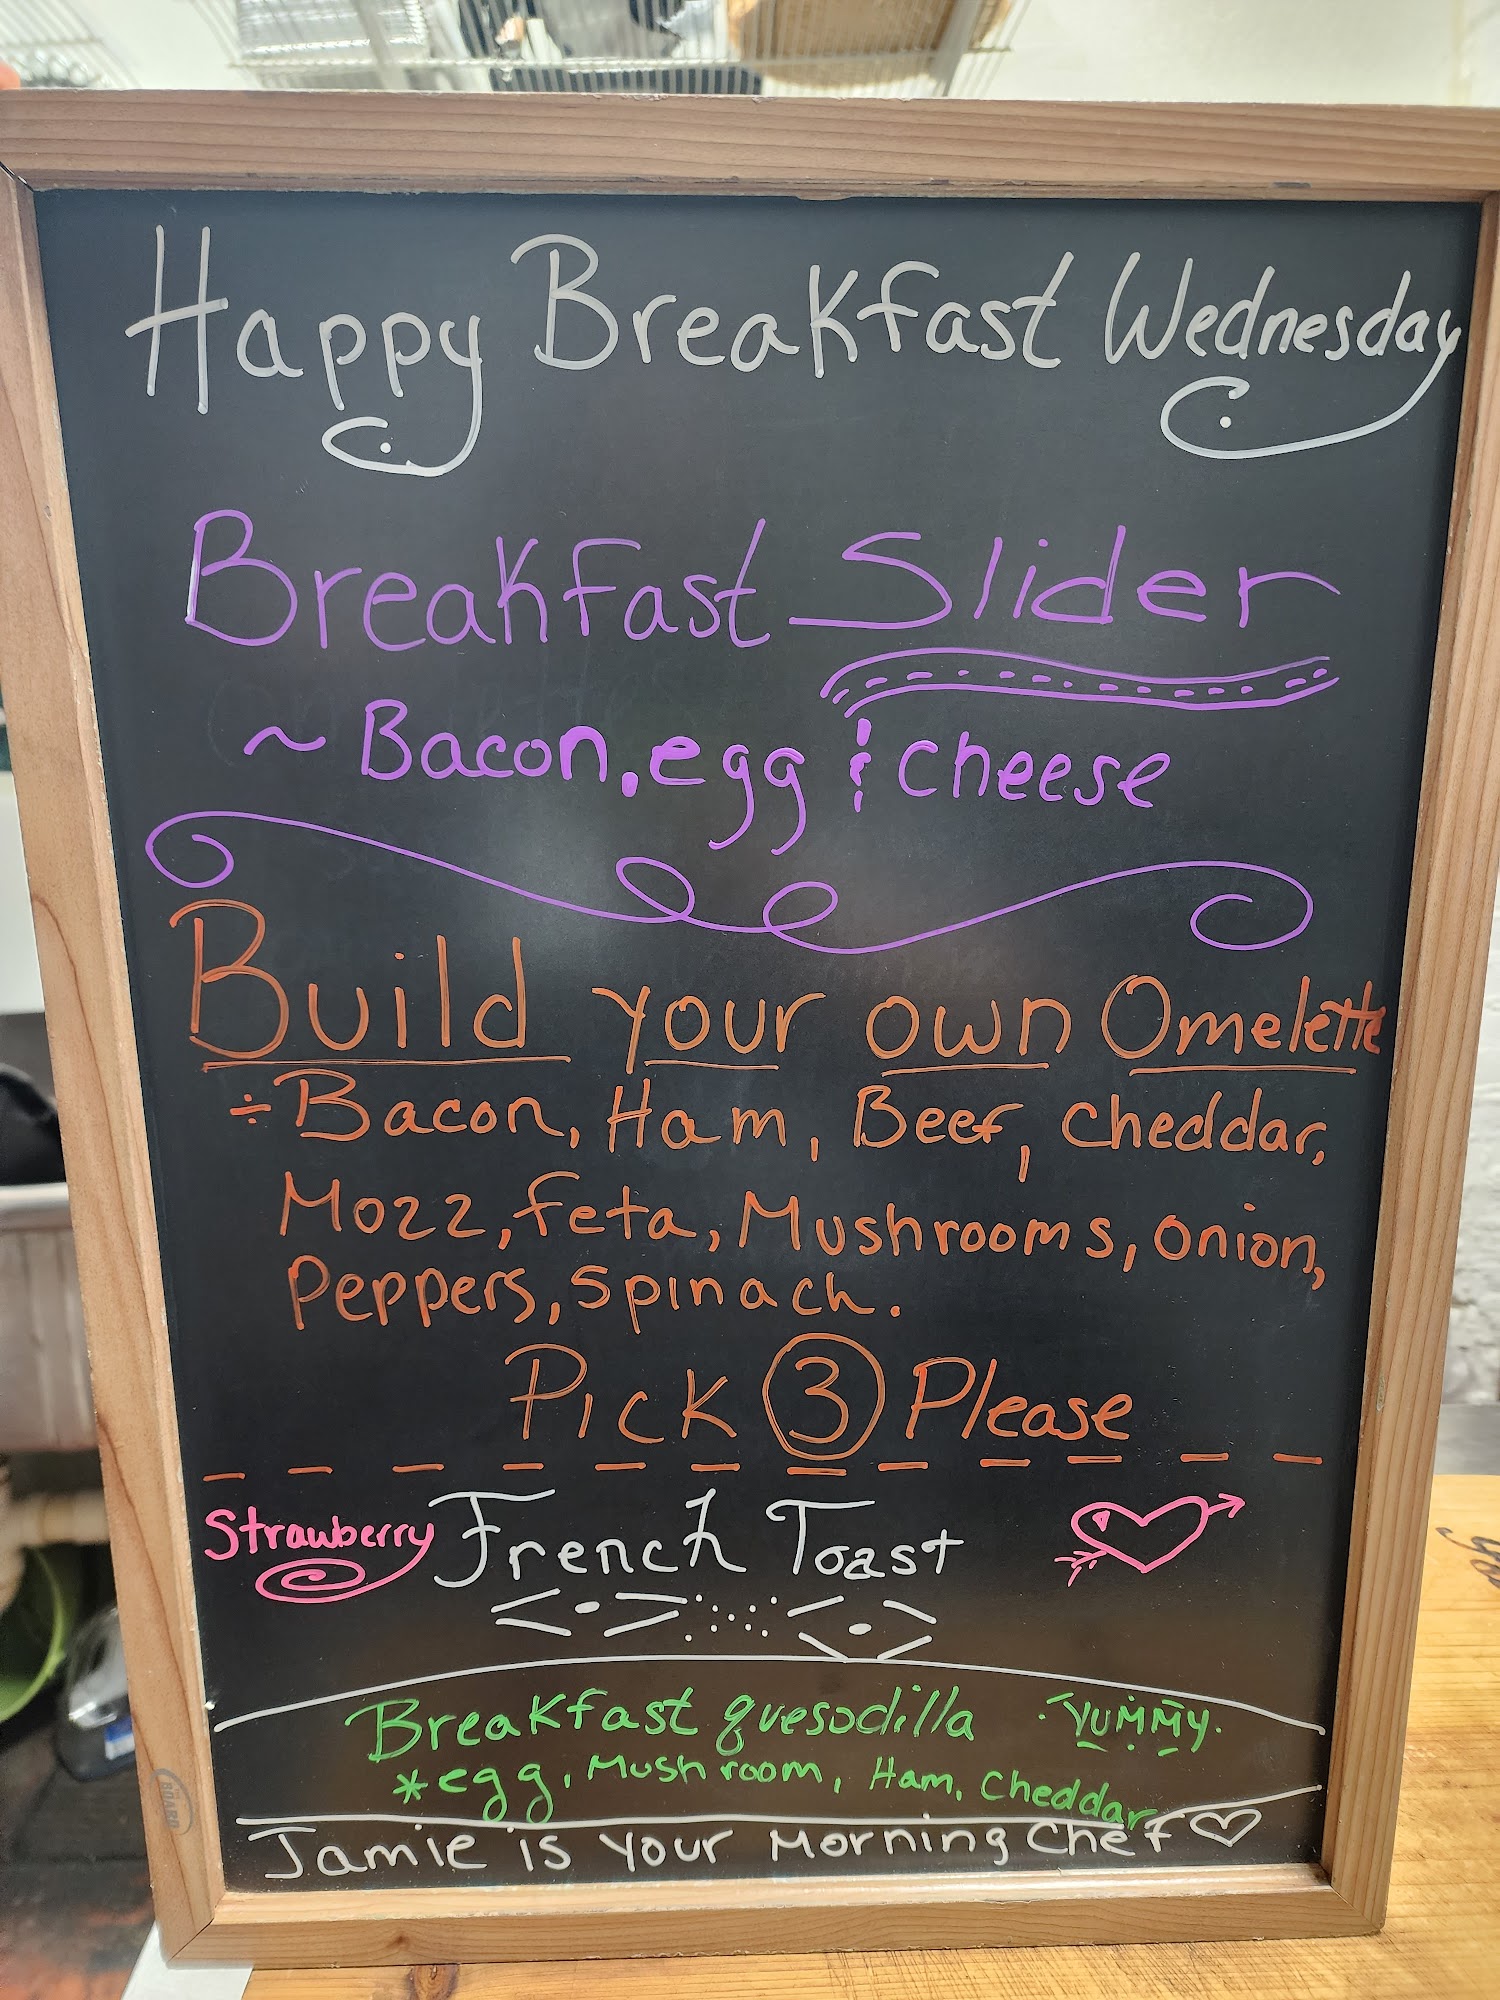 Happy Breakfast Wednesday
Breakfast Slider
~ Bacon, egg & cheese
Build your own Omelette
÷ Bacon, Ham, Beef, cheddar,
Mozz, feta, Mushrooms, onion,
Peppers, spinach.
Pick 3 Please
Strawberry French Toast
Breakfast quesodilla YUMMY
*egg, Mushroom, Ham, Cheddar
Jamie is your Morning Chef ♡